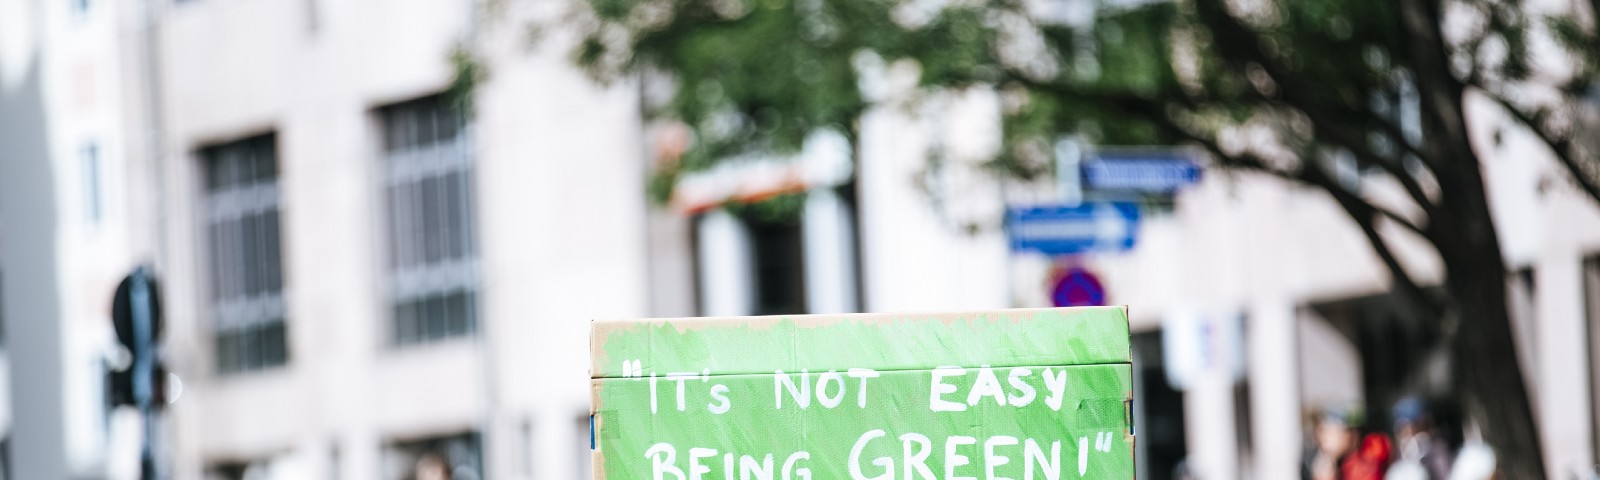 "IT'S NOT EASY
BEING GREEN!"